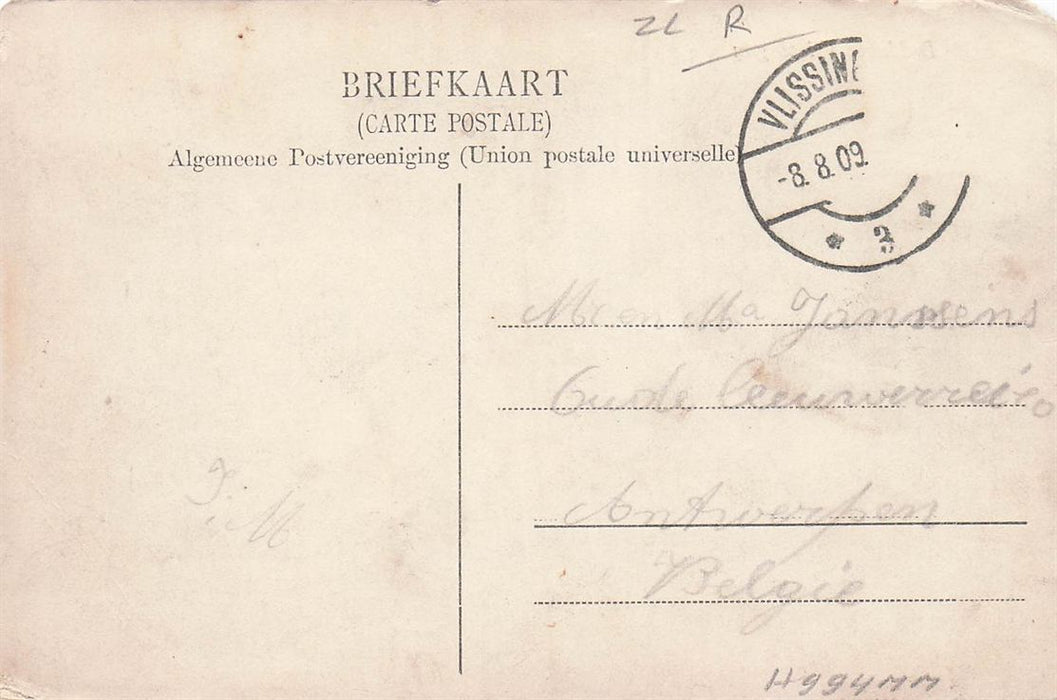 ZL R
BRIEFKAART
(CARTE POSTALE)
Algemeene Postvereeniging (Union postale universelle)
VLISSING
-8. 8. 09.
* 3 *
Mr en Ma Janssens
Oude
Antwerpen
België
J. M
H994MM